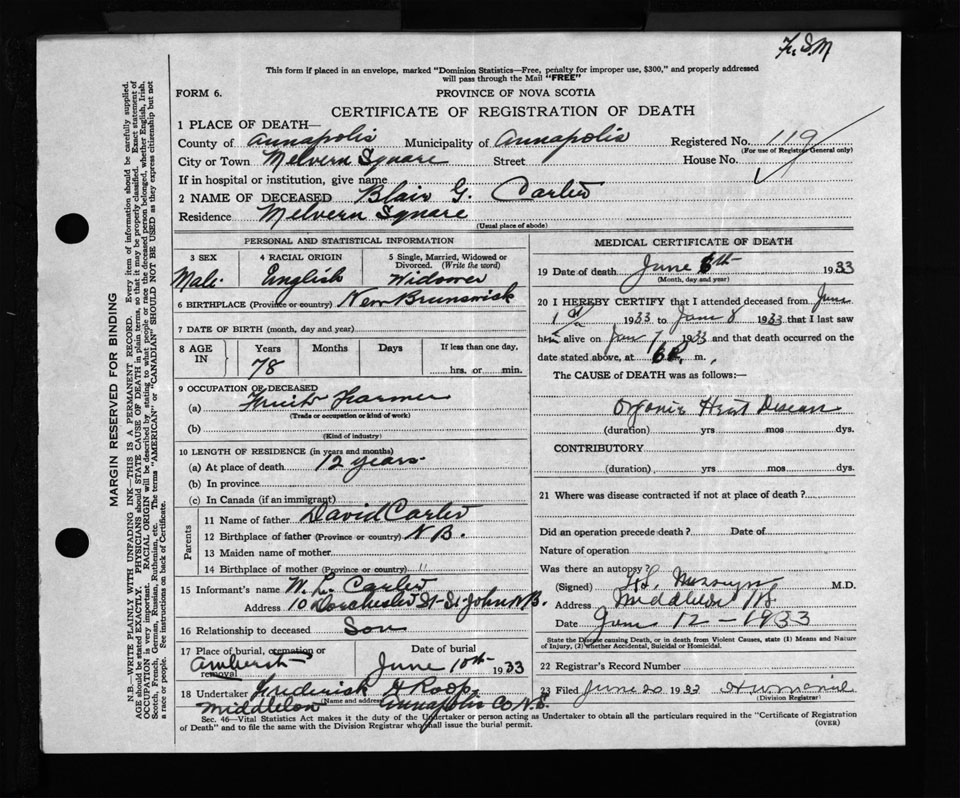 F. S. M
This form if placed in an envelope, marked "Dominion Statistics—Free, penalty for improper use, $300," and properly addressed
will pass through the Mail "FREE"
FORM 6.
PROVINCE OF NOVA SCOTIA
CERTIFICATE OF REGISTRATION OF DEATH
1 PLACE OF DEATH—
County of Annapolis Municipality of Annapolis Registered No. 119
(For use of Registrar General only)
City or Town Melvern Square Street House No.
If in hospital or institution, give name
2 NAME OF DECEASED Blair G. Carter
Residence Melvern Square
(Usual place of abode)
PERSONAL AND STATISTICAL INFORMATION
3 SEX 4 RACIAL ORIGIN 5 Single, Married, Widowed or
Divorced. (Write the word)
Male. English Widower
6 BIRTHPLACE (Province or country) New Brunswick
7 DATE OF BIRTH (month, day and year)
8 AGE IN Years Months Days If less than one day,
78 hrs. or min.
9 OCCUPATION OF DECEASED
(a) Fruit Farmer
(Trade or occupation or kind of work)
(b)
(Kind of industry)
10 LENGTH OF RESIDENCE (in years and months)
(a) At place of death 12 years
(b) In province
(c) In Canada (if an immigrant)
Parents
11 Name of father David Carter
12 Birthplace of father (Province or country) N.B.
13 Maiden name of mother
14 Birthplace of mother (Province or country) "
15 Informant's name W. L. Carter
Address 10 Dorchester St-St John N.B.
16 Relationship to deceased Son
17 Place of burial, cremation or removal Date of burial
Amherst June 10th 1933
18 Undertaker Frederick Roop
(Name and address)
Middleton Annapolis Co N.S.
MEDICAL CERTIFICATE OF DEATH
19 Date of death June 8th 1933
(Month, day and year)
20 I HEREBY CERTIFY that I attended deceased from June
1st 1933 to June 8 1933 that I last saw
him alive on Jun 7 1933 and that death occurred on the
date stated above, at 6 P. m.,
The CAUSE of DEATH was as follows:—
Organic Heart Disease
(duration) yrs mos dys.
CONTRIBUTORY
(duration) yrs mos dys.
21 Where was disease contracted if not at place of death?
Did an operation precede death? Date of
Nature of operation
Was there an autopsy?
(Signed) M.D.
Address Middleton NS.
Date June 12 - 1933
State the Disease causing Death, or in death from Violent Causes, state (1) Means and Nature
of Injury, (2) whether Accidental, Suicidal or Homicidal.
22 Registrar's Record Number
23 Filed June 20 1933
(Division Registrar)
Sec. 46—Vital Statistics Act makes it the duty of the Undertaker or person acting as Undertaker to obtain all the particulars required in the "Certificate of Registration
of Death" and to file the same with the Division Registrar who shall issue the burial permit. (OVER)
MARGIN RESERVED FOR BINDING
N.B.—WRITE PLAINLY WITH UNFADING INK—THIS IS A PERMANENT RECORD. Every item of information should be carefully supplied.
AGE should be stated EXACTLY. PHYSICIANS should STATE CAUSE OF DEATH in plain terms, so that it may be properly classified. Exact statement of
OCCUPATION is very important. RACIAL ORIGIN will be described by stating to what people or race the deceased person belonged, whether English, Irish,
Scotch, French, German, Russian, Ruthenian, etc. The terms "AMERICAN" or "CANADIAN" SHOULD NOT BE USED as they express citizenship but not
a race or people. See instructions on back of Certificate.